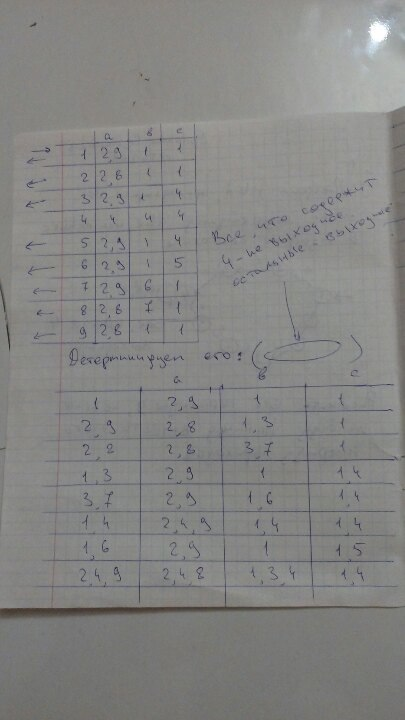 a в c
→ ← 1 2,9 1 1
← 2 2,8 1 1
← 3 2,9 1 4
4 4 4 4
← 5 2,9 1 4
← 6 2,9 1 5
← 7 2,9 6 1
← 8 2,8 7 1
← 9 2,8 1 1
Все, что содержит
4 - не выходное
остальные - выходные
Детерминируем его: ( )
a в c
1 2,9 1 1
2,9 2,8 1,3 1
2,8 2,8 3,7 1
1,3 2,9 1 1,4
3,7 2,9 1,6 1,4
1,4 2,4,9 1,4 1,4
1,6 2,9 1 1,5
2,4,9 2,4,8 1,3,4 1,4